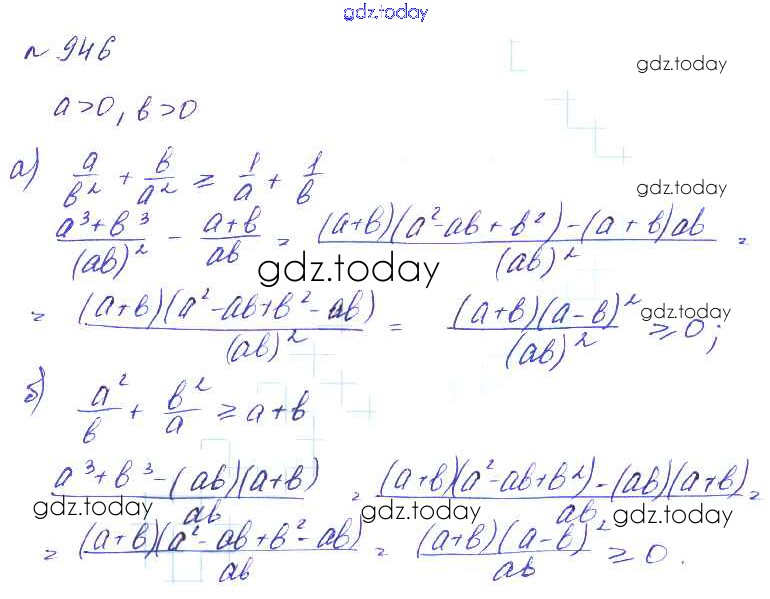 gdz.today
№ 946
gdz.today
a>0, b>0
а) a/b² + b/a² ≥ 1/a + 1/b
gdz.today
(a³+b³)/(ab)² - (a+b)/ab = ((a+b)(a²-ab+b²)-(a+b)ab)/(ab)² =
gdz.today
= ((a+b)(a²-ab+b²-ab))/(ab)² = ((a+b)(a-b)²)/(ab)² ≥ 0;
gdz.today
б) a²/b + b²/a ≥ a+b
(a³+b³-(ab)(a+b))/ab = ((a+b)(a²-ab+b²)-(ab)(a+b))/ab =
gdz.today gdz.today gdz.today
= ((a+b)(a²-ab+b²-ab))/ab = ((a+b)(a-b)²)/ab ≥ 0.